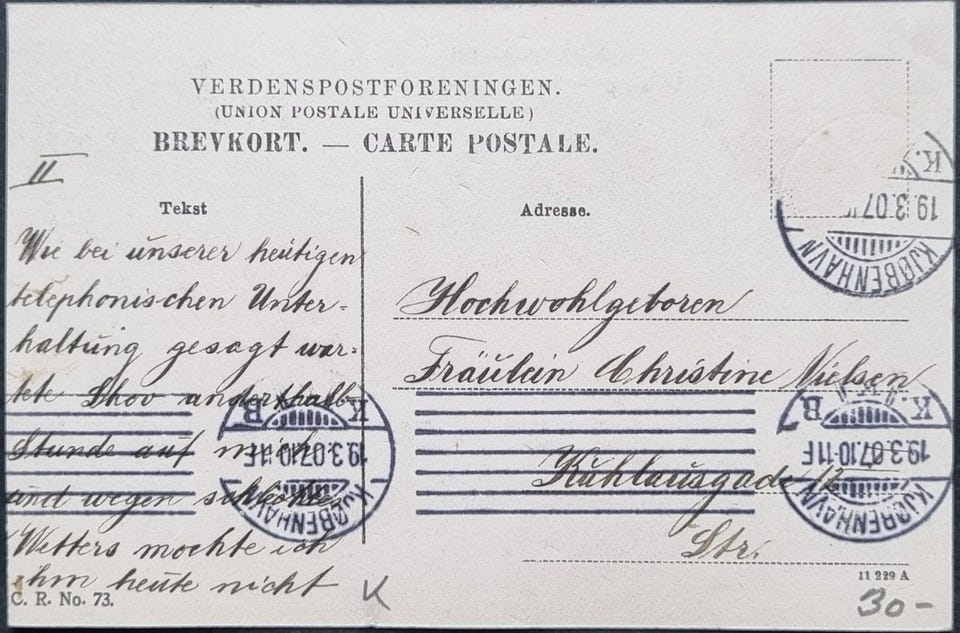 VERDENSPOSTFORENINGEN.
(UNION POSTALE UNIVERSELLE)
BREVKORT. — CARTE POSTALE.
II
Tekst
Wie bei unserer heutigen
telephonischen Unter-
haltung gesagt war-
tete Skov anderthalb-
Stunde auf mich
und wegen schlechtes
Wetters mochte ich
ihm heute nicht
C. R. No. 73.
K
Adresse.
Hochwohlgeboren
Fräulein Christine Nielsen
Kuhlausgade 12
Str.
11 229 A
30-
K.
19.3.07.
KJØBENHAVN
K. B.
19.3.07.10-11F
KJØBENHAVN
K. B.
19.3.07.10-11F
KJØBENHAVN